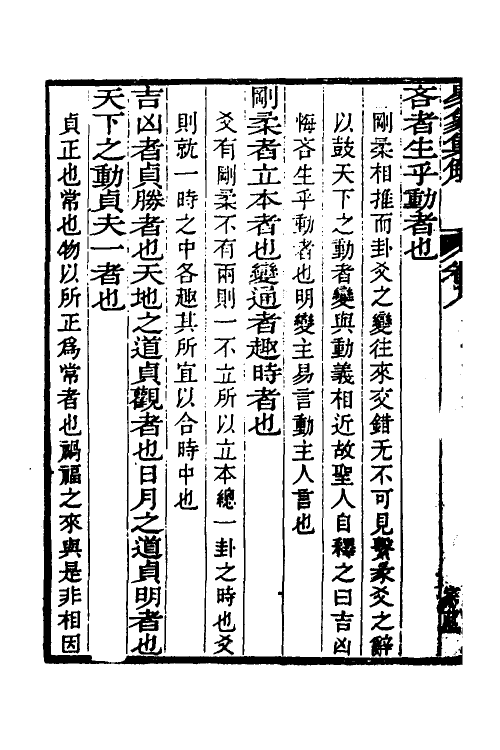 易象集解　卷八
吝者生乎動者也
剛柔相推而卦爻之變往來交錯无不可見繫彖爻之辭
以鼓天下之動者變與動義相近故聖人自釋之曰吉凶
悔吝生乎動者也明變主易言動主人言也
剛柔者立本者也變通者趣時者也
爻有剛柔不有兩則一不立所以立本總一卦之時也爻
則就一時之中各趣其所宜以合時中也
吉凶者貞勝者也天地之道貞觀者也日月之道貞明者也
天下之動貞夫一者也
貞正也常也物以所正爲常者也禍福之來與是非相因